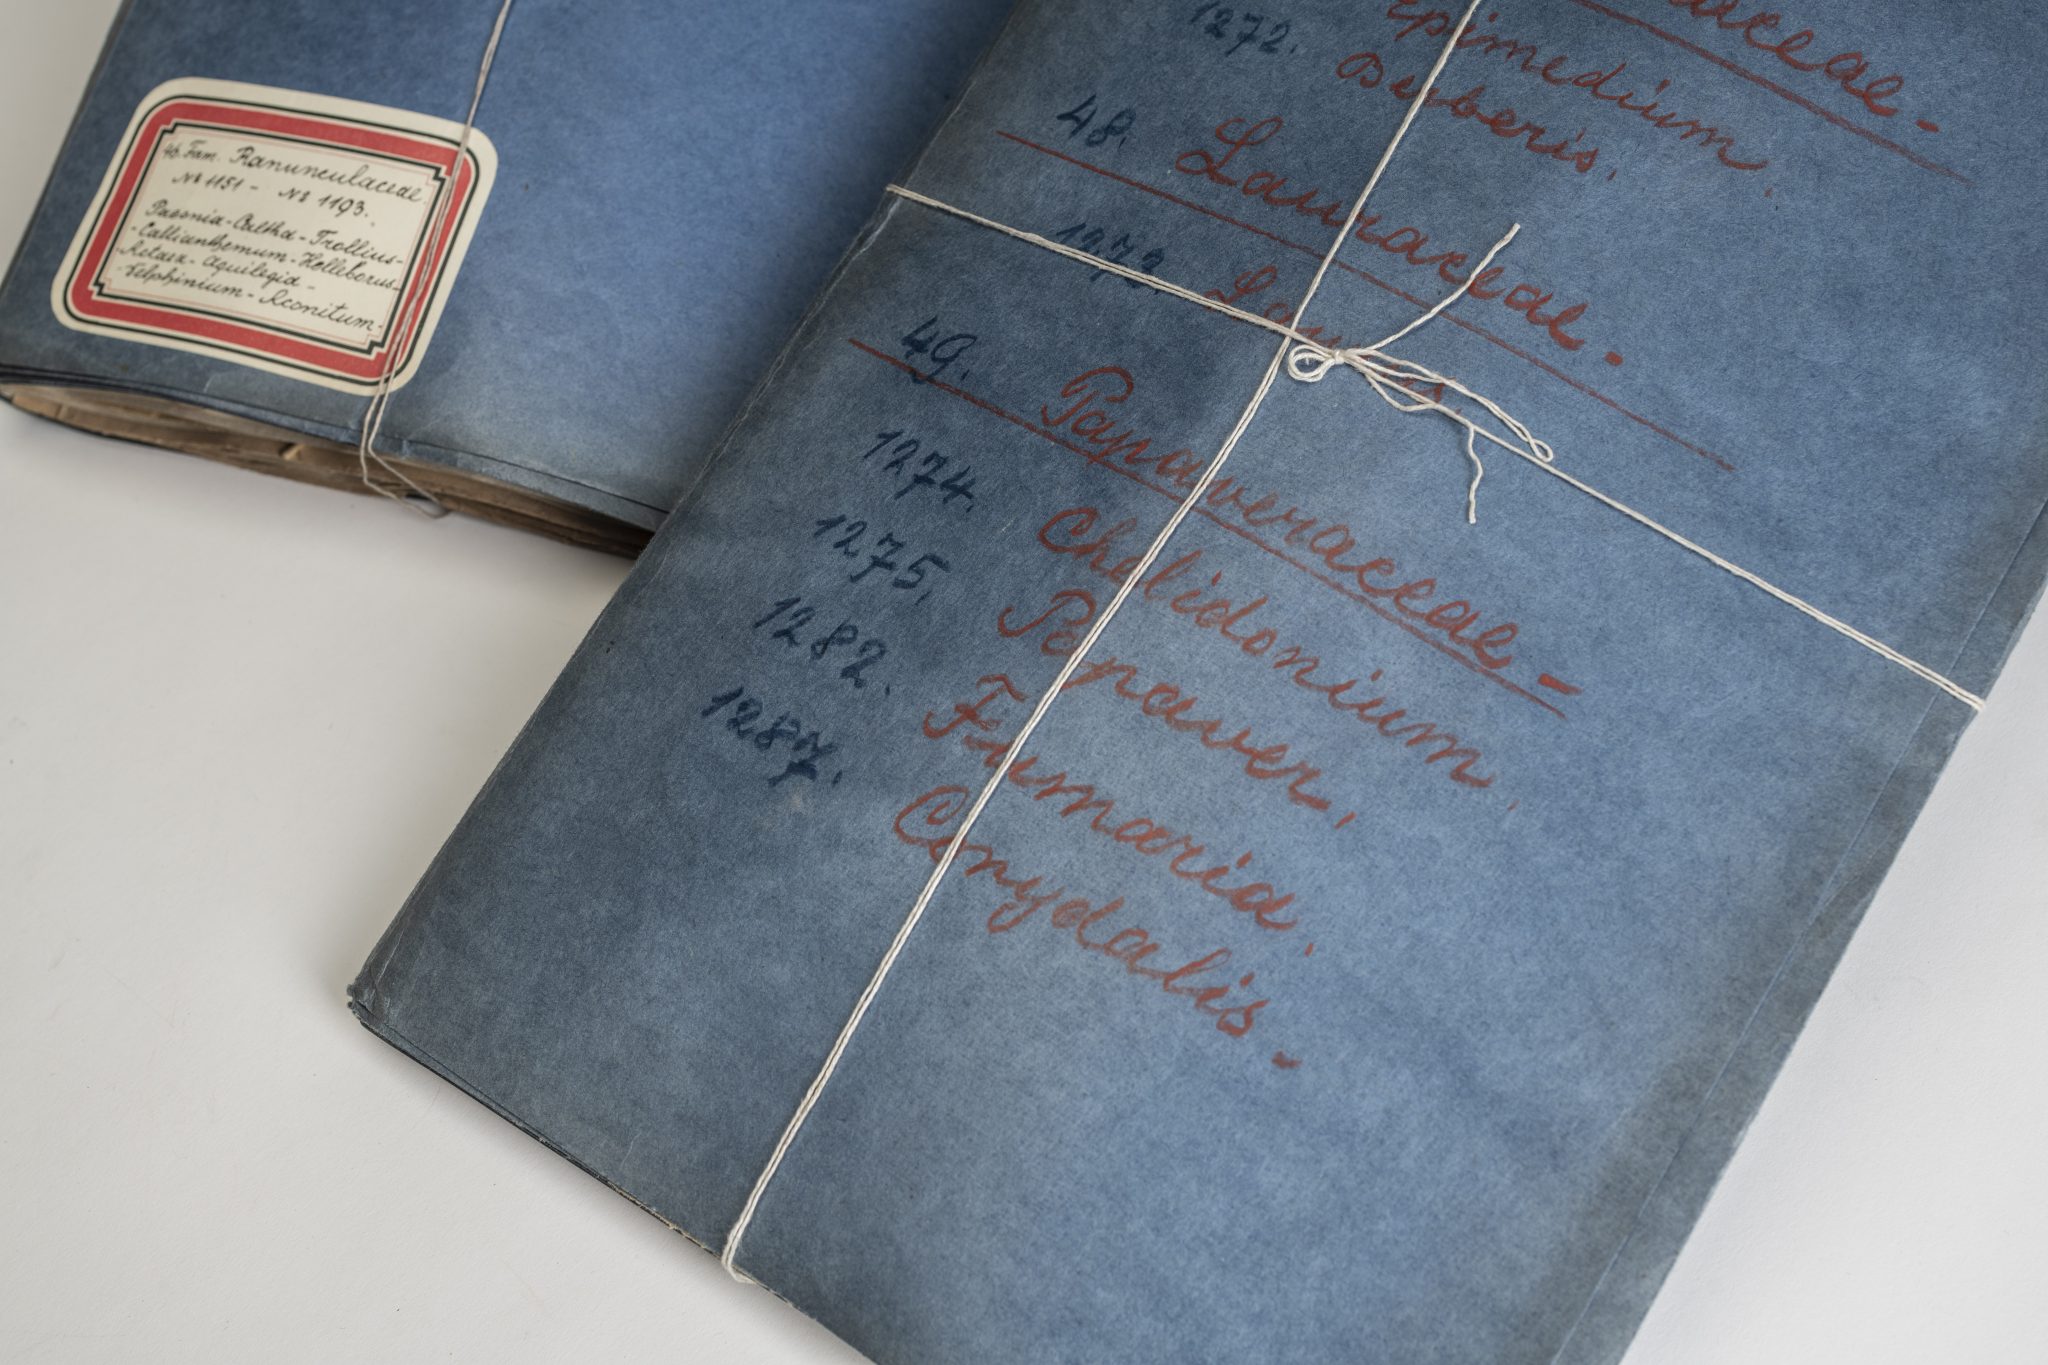 46. Fam. Ranunculaceae.
№ 1151 - № 1193.
Paeonia - Caltha - Trollius -
- Callianthemum - Helleborus -
- Actaea - Aquilegia -
- Delphinium - Aconitum -
1272. Epimedium.
Berberis.
48. Lauraceae -
1273. Laurus.
49. Papaveraceae -
1274. Chelidonium.
1275. Papaver.
1282. Fumaria.
1287. Corydalis -